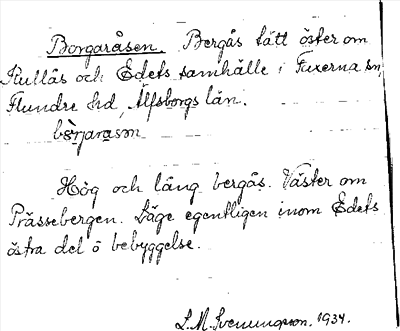 Borgaråsen. Bergås tätt öster om
Rullås och Edets samhälle i Fuxerna sn,
Flundre hd, Älfsborgs län.
Hög och lång bergås. Väster om
Prässebergen. Läge egentligen inom Edets
östra del ö bebyggelse.
L.M. Svenungsson. 1934.